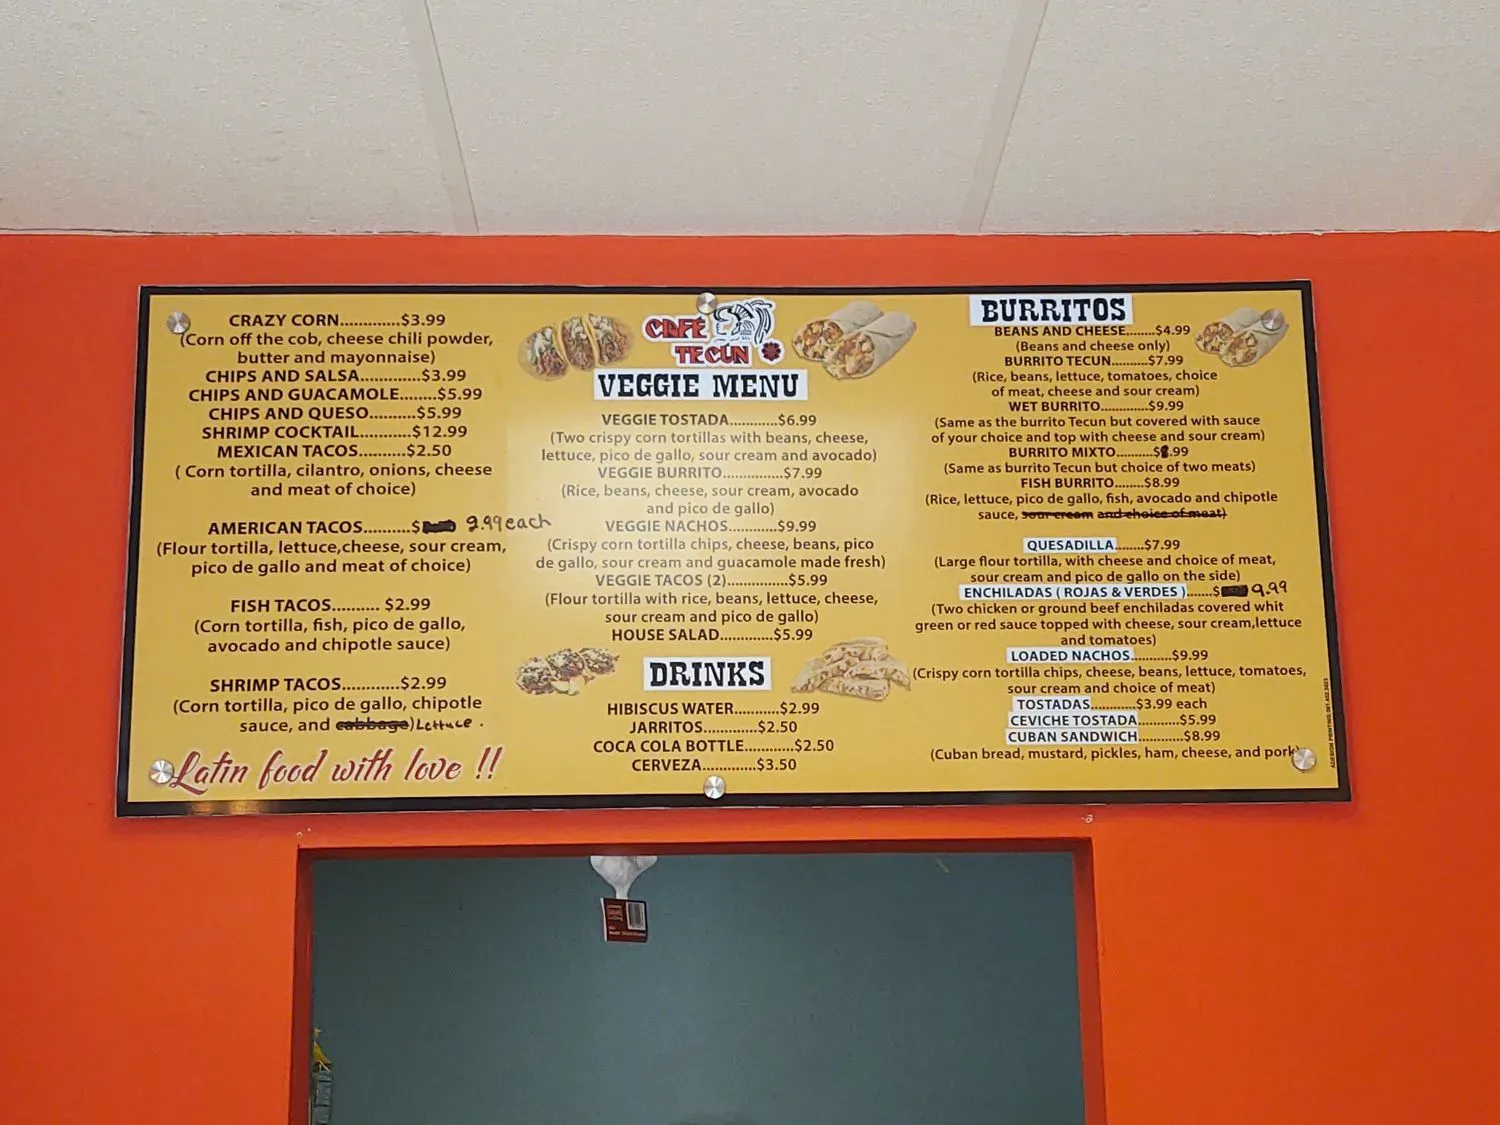 CRAZY CORN.............$3.99
(Corn off the cob, cheese chili powder,
butter and mayonnaise)
CHIPS AND SALSA.............$3.99
CHIPS AND GUACAMOLE........$5.99
CHIPS AND QUESO..........$5.99
SHRIMP COCKTAIL...........$12.99
MEXICAN TACOS..........$2.50
( Corn tortilla, cilantro, onions, cheese
and meat of choice)
AMERICAN TACOS..........$ 2.99 each
(Flour tortilla, lettuce,cheese, sour cream,
pico de gallo and meat of choice)
FISH TACOS.......... $2.99
(Corn tortilla, fish, pico de gallo,
avocado and chipotle sauce)
SHRIMP TACOS............$2.99
(Corn tortilla, pico de gallo, chipotle
sauce, and cabbage) Lettuce.
Latin food with love !!
CAFÉ
TECUN
VEGGIE MENU
VEGGIE TOSTADA............$6.99
(Two crispy corn tortillas with beans, cheese,
lettuce, pico de gallo, sour cream and avocado)
VEGGIE BURRITO...............$7.99
(Rice, beans, cheese, sour cream, avocado
and pico de gallo)
VEGGIE NACHOS............$9.99
(Crispy corn tortilla chips, cheese, beans, pico
de gallo, sour cream and guacamole made fresh)
VEGGIE TACOS (2)...............$5.99
(Flour tortilla with rice, beans, lettuce, cheese,
sour cream and pico de gallo)
HOUSE SALAD.............$5.99
DRINKS
HIBISCUS WATER...........$2.99
JARRITOS.............$2.50
COCA COLA BOTTLE............$2.50
CERVEZA.............$3.50
BURRITOS
BEANS AND CHEESE........$4.99
(Beans and cheese only)
BURRITO TECUN..........$7.99
(Rice, beans, lettuce, tomatoes, choice
of meat, cheese and sour cream)
WET BURRITO.............$9.99
(Same as the burrito Tecun but covered with sauce
of your choice and top with cheese and sour cream)
BURRITO MIXTO..........$ .99
(Same as burrito Tecun but choice of two meats)
FISH BURRITO........$8.99
(Rice, lettuce, pico de gallo, fish, avocado and chipotle
sauce, sour cream and choice of meat)
QUESADILLA........$7.99
(Large flour tortilla, with cheese and choice of meat,
sour cream and pico de gallo on the side)
ENCHILADAS ( ROJAS & VERDES ).......$ 9.99
(Two chicken or ground beef enchiladas covered whit
green or red sauce topped with cheese, sour cream,lettuce
and tomatoes)
LOADED NACHOS...........$9.99
(Crispy corn tortilla chips, cheese, beans, lettuce, tomatoes,
sour cream and choice of meat)
TOSTADAS............$3.99 each
CEVICHE TOSTADA............$5.99
CUBAN SANDWICH............$8.99
(Cuban bread, mustard, pickles, ham, cheese, and pork)